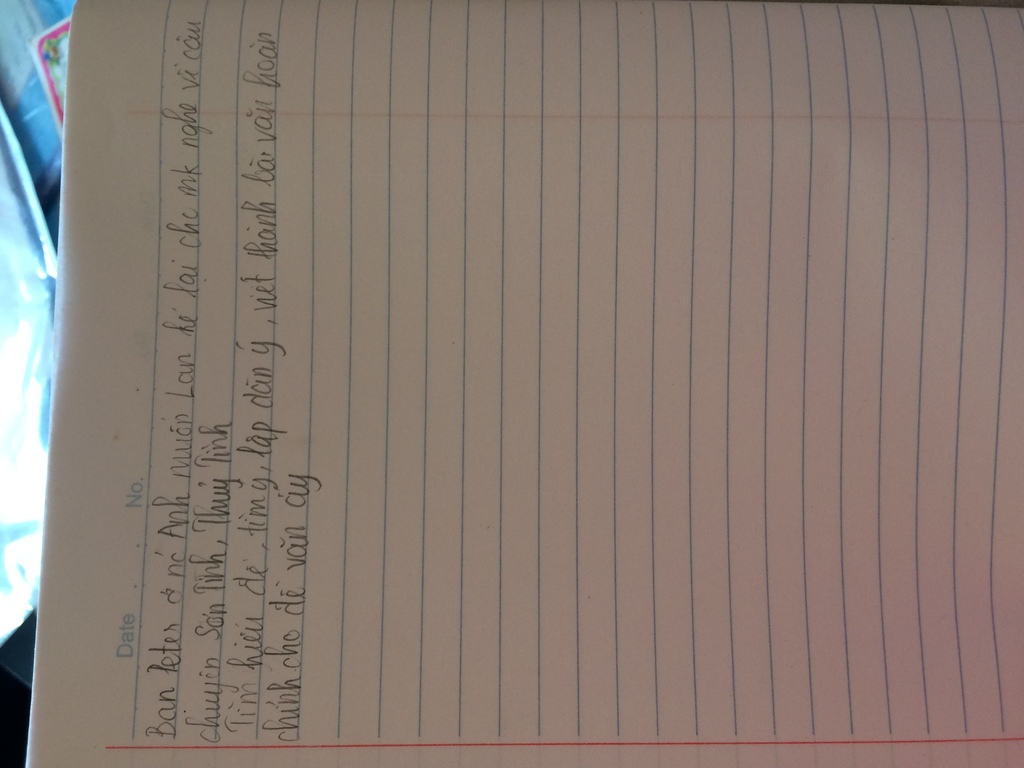 Date . . No. .
Bạn Peter ở nc Anh muốn Lan kể lại cho mk nghe về câu
chuyện Sơn Tinh, Thủy Tinh
Tìm hiểu đề, tìm ý, lập dàn ý, viết thành bài văn hoàn
chỉnh cho đề văn ấy